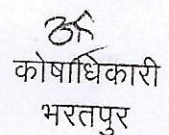 कोषाधिकारी
भरतपुर